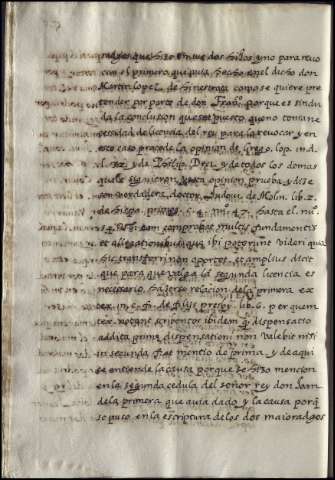 que hizo en sus dos hijos, y no para revo
car el primero que avia hecho en el dicho don
Martin lopez de hinestrosa como se quiere pre
tender por parte de don porque es sin du
da la conclusion que este puesto, que no to viene
necesidad de licencia del rey para la revocar y en
este caso procede la opinion de Grego. lop. in d.
l. y de y de todos los demas
que le siguieron, y esta opinion prueba y dize
ser verdadera, doctor Ludovic de Molin. lib. 2.
de hispa. primog. c. 4. n. 47. hasta el nu.
ubi eam comprobat multis fundamentis
et allegationibus que ibi poterunt videri quia
hic transferri non oportet, et amplius dicit
que para que valga la segunda licencia es
necesario hazerse relacion de la primera ex
tex. in c. fi. de filijs presby. lib. 6. per quem
tex. notant scriventes ibidem q dispensatio
addita prima dispensationi non valebit nisi
in secunda fiat mentio de prima, y de aqui
se entiende la causa porque se hizo mencion
en la segunda cedula del señor rey don Joan
de la primera que avia dado, y la causa porq
se puso en la escriptura de los dos maioradgos